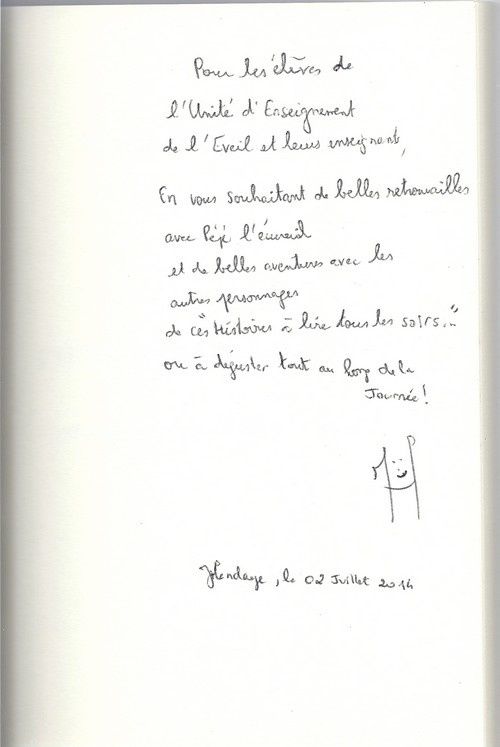 Pour les élèves de
l'Unité d'Enseignement
de l'Eveil et leurs enseignant,
En vous souhaitant de belles retrouvailles
avec Pépé l'écureuil
et de belles aventures avec les
autres personnages
de ces "Histoires à lire tous les soirs..."
ou à déguster tout au long de la
Journée!
Hendaye, le 02 Juillet 2014